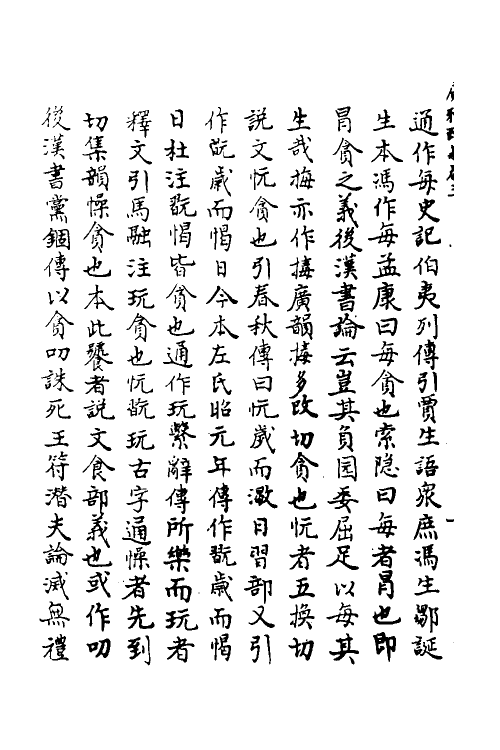 通作每史記伯夷列傳引賈生語衆庶馮生鄒誕
生本馮作每孟康曰每貪也索隐曰每者冒也即
冒貪之義後漢書論云豈其負园委屈足以每其
生哉挴亦作㨄廣韻㨄多改切貪也忨者五換切
說文忨貪也引春秋傳曰忨歲而㵣日習部又引
作翫歲而愒日今本左氏昭元年傳作翫歲而愒
日杜注翫愒皆貪也通作玩繫辭傳所樂而玩者
釋文引馬融注玩貪也忨翫玩古字通懆者先到
切集韻懆貪也本此饕者說文食部義也或作叨
後漢書黨錮傳以貪叨誅死王符潛夫論滅無禮